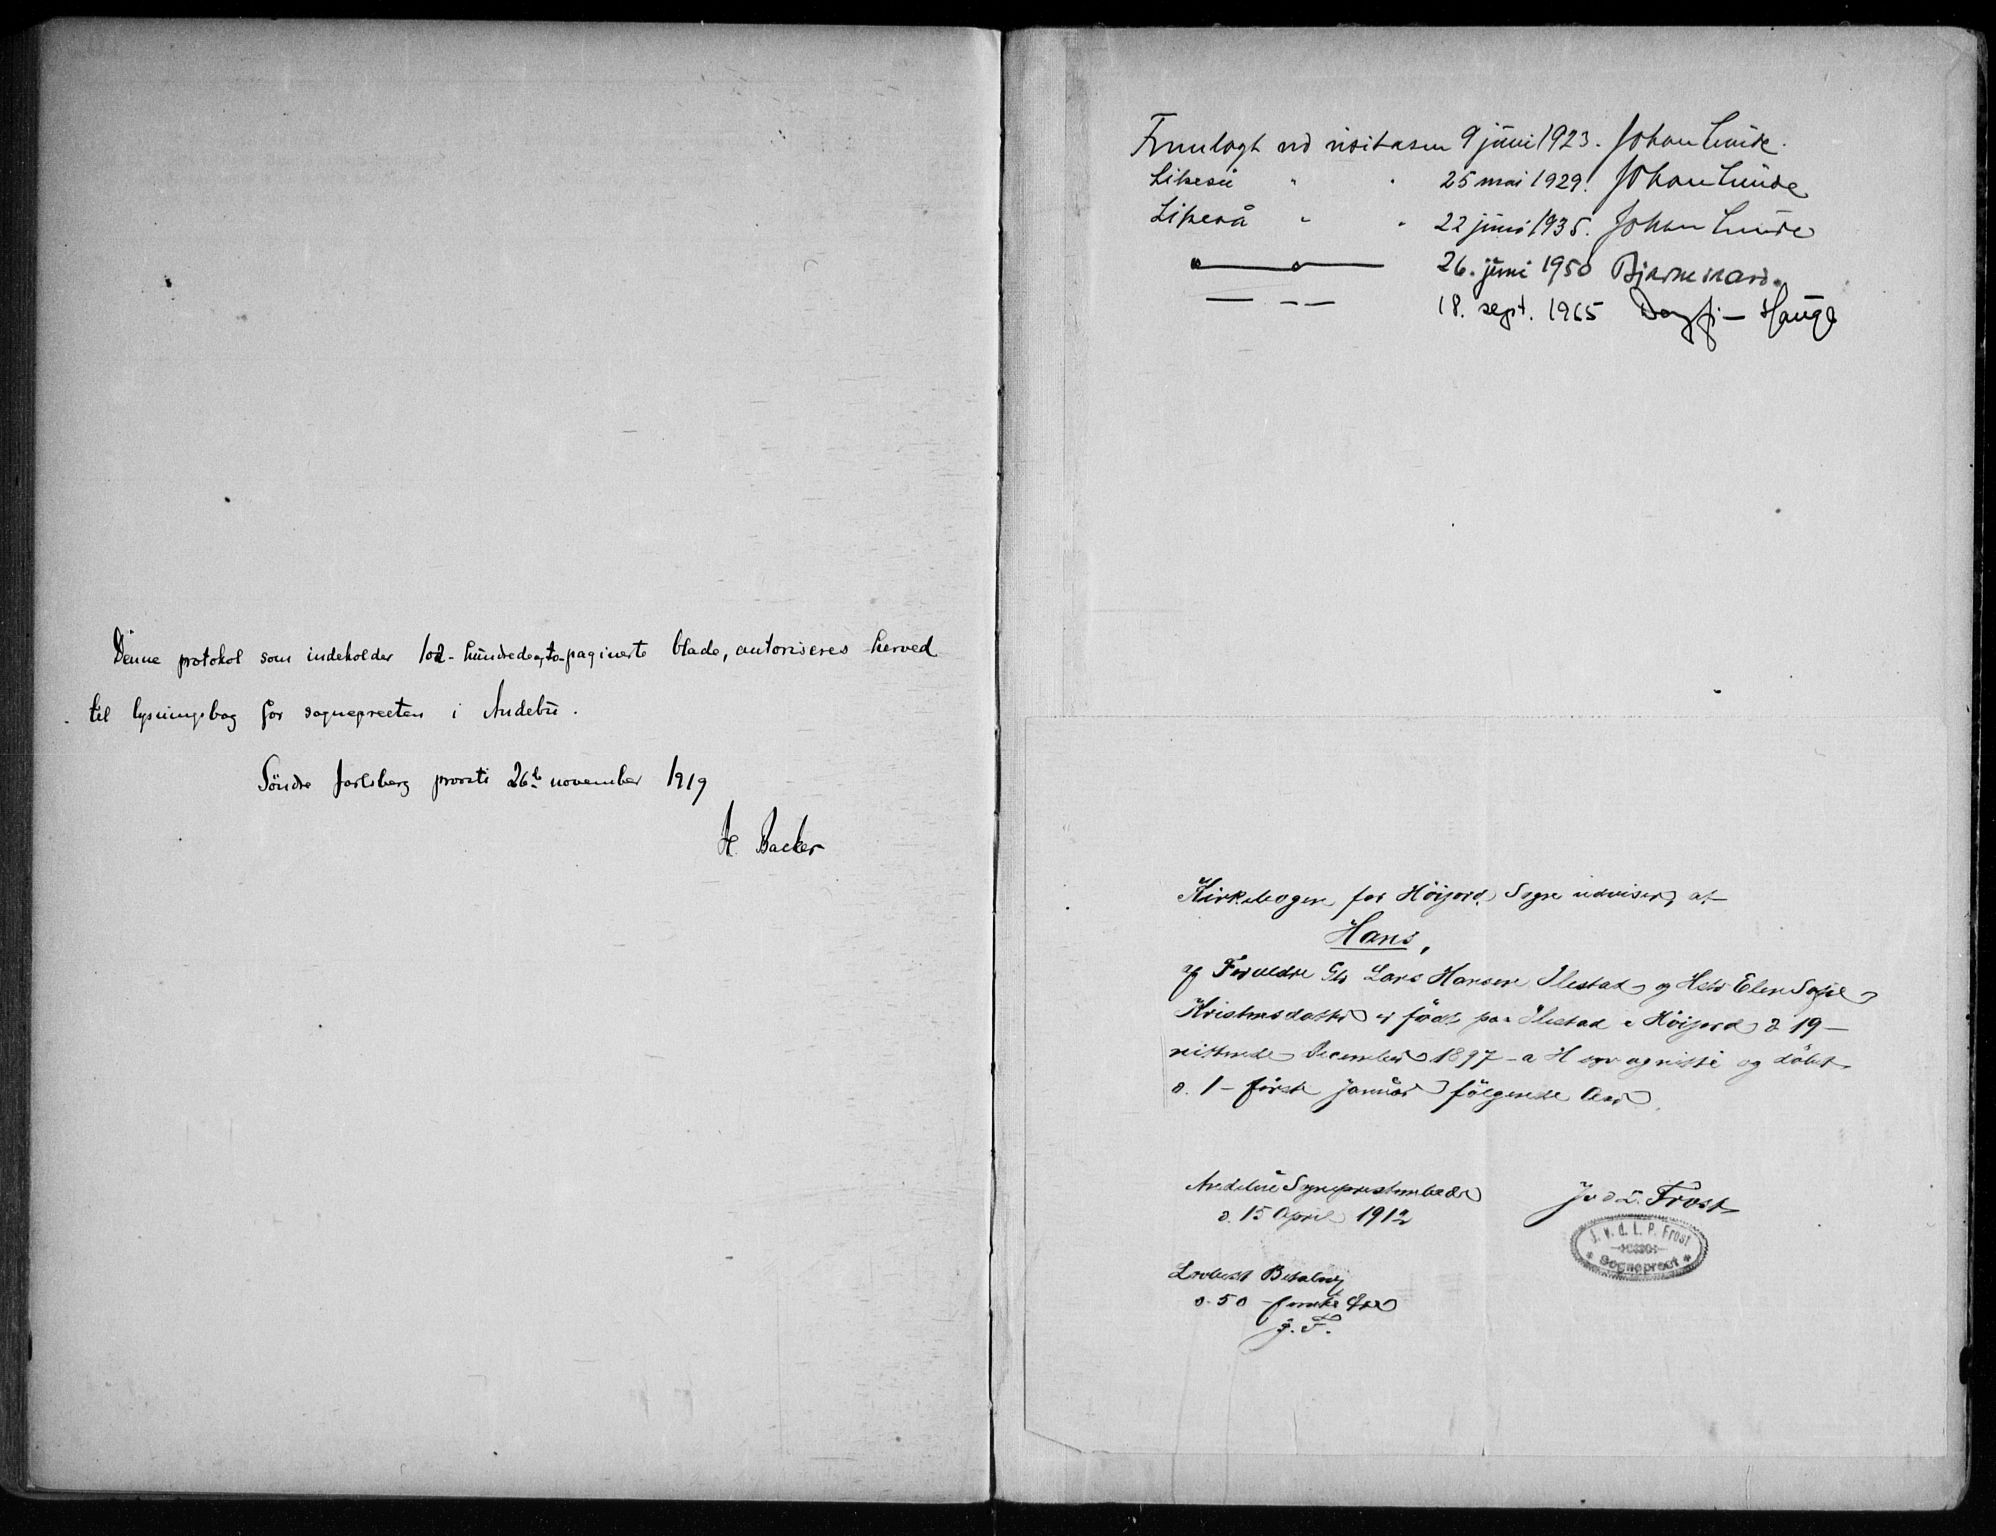 Denne protokol som indeholder 102 - hundredeogto - paginerte blade, autoriseres herved
til lysningsbog for sognepresten i Andebu.
Söndre Jarlsberg provsti 26de november 1919
H. Backer
Fremlagt ved visitasen 9 juni 1923. Johan Lunde.
Likeså " " 25 mai 1929. Johan Lunde
Likeså " " 22 juni 1935. Johan Lunde
26. juni 1950 Bjarne Skard.
— - - 18. sept. 1965 Dagfinn Hauge
Kirkebogen for Höijord Sogn udviser, at
Hans,
af Forældre Lars Hansen Ilestad og Elen Sofie
Kristensdatter er född paa Ilestad i Höijord d 19 -
nittende December 1897 - og döbt
d. 1 - förste Januar följende Aar.
Andebu Sogneprestembede
d. 15 April 1912
J v d L. Frost
J. v. d. L. P. Frost
Sogneprest
Lovbest Betaling
0.50 - femti Öre
J. F.